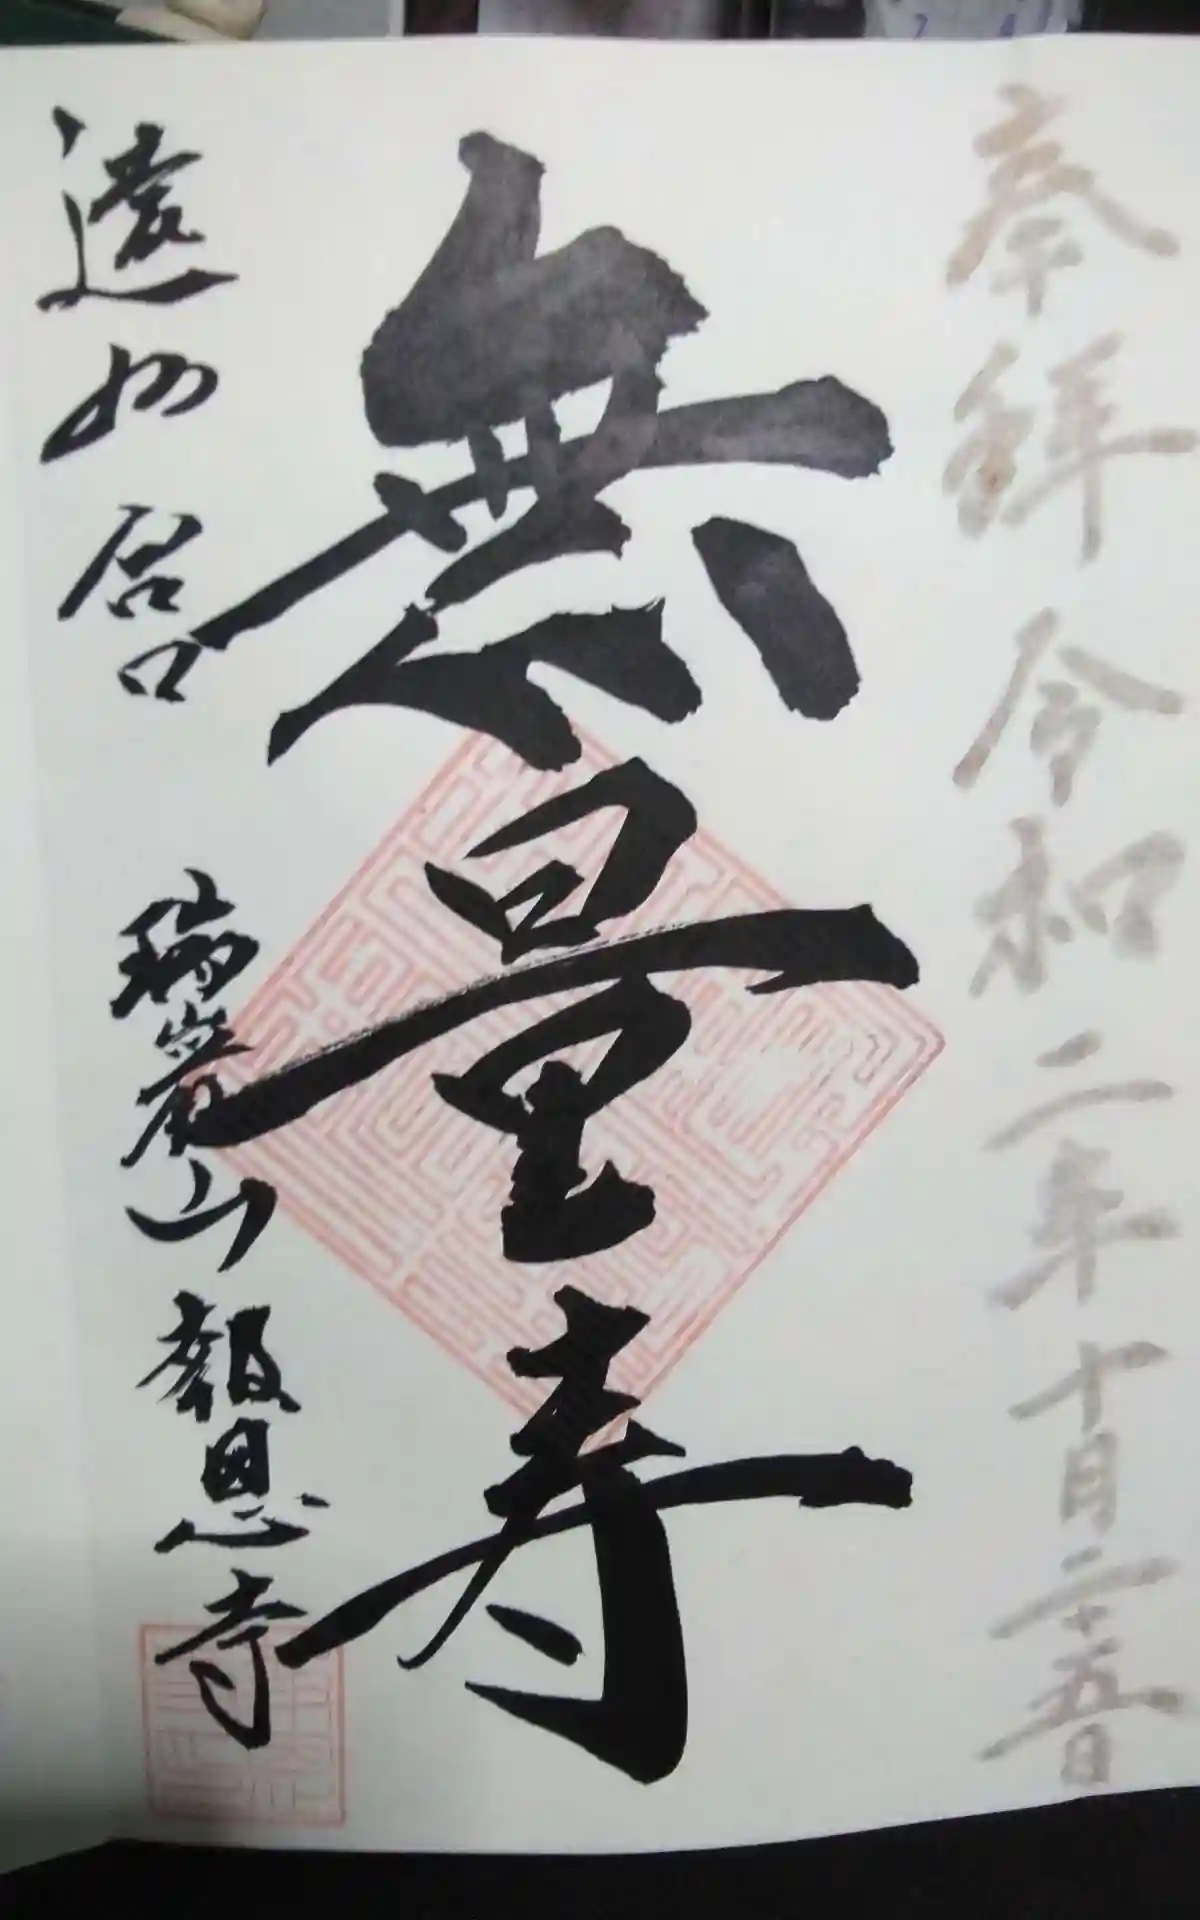 奉拝 令和二年十月二十五日
無量寿
遠州
瑞雲山 報恩寺